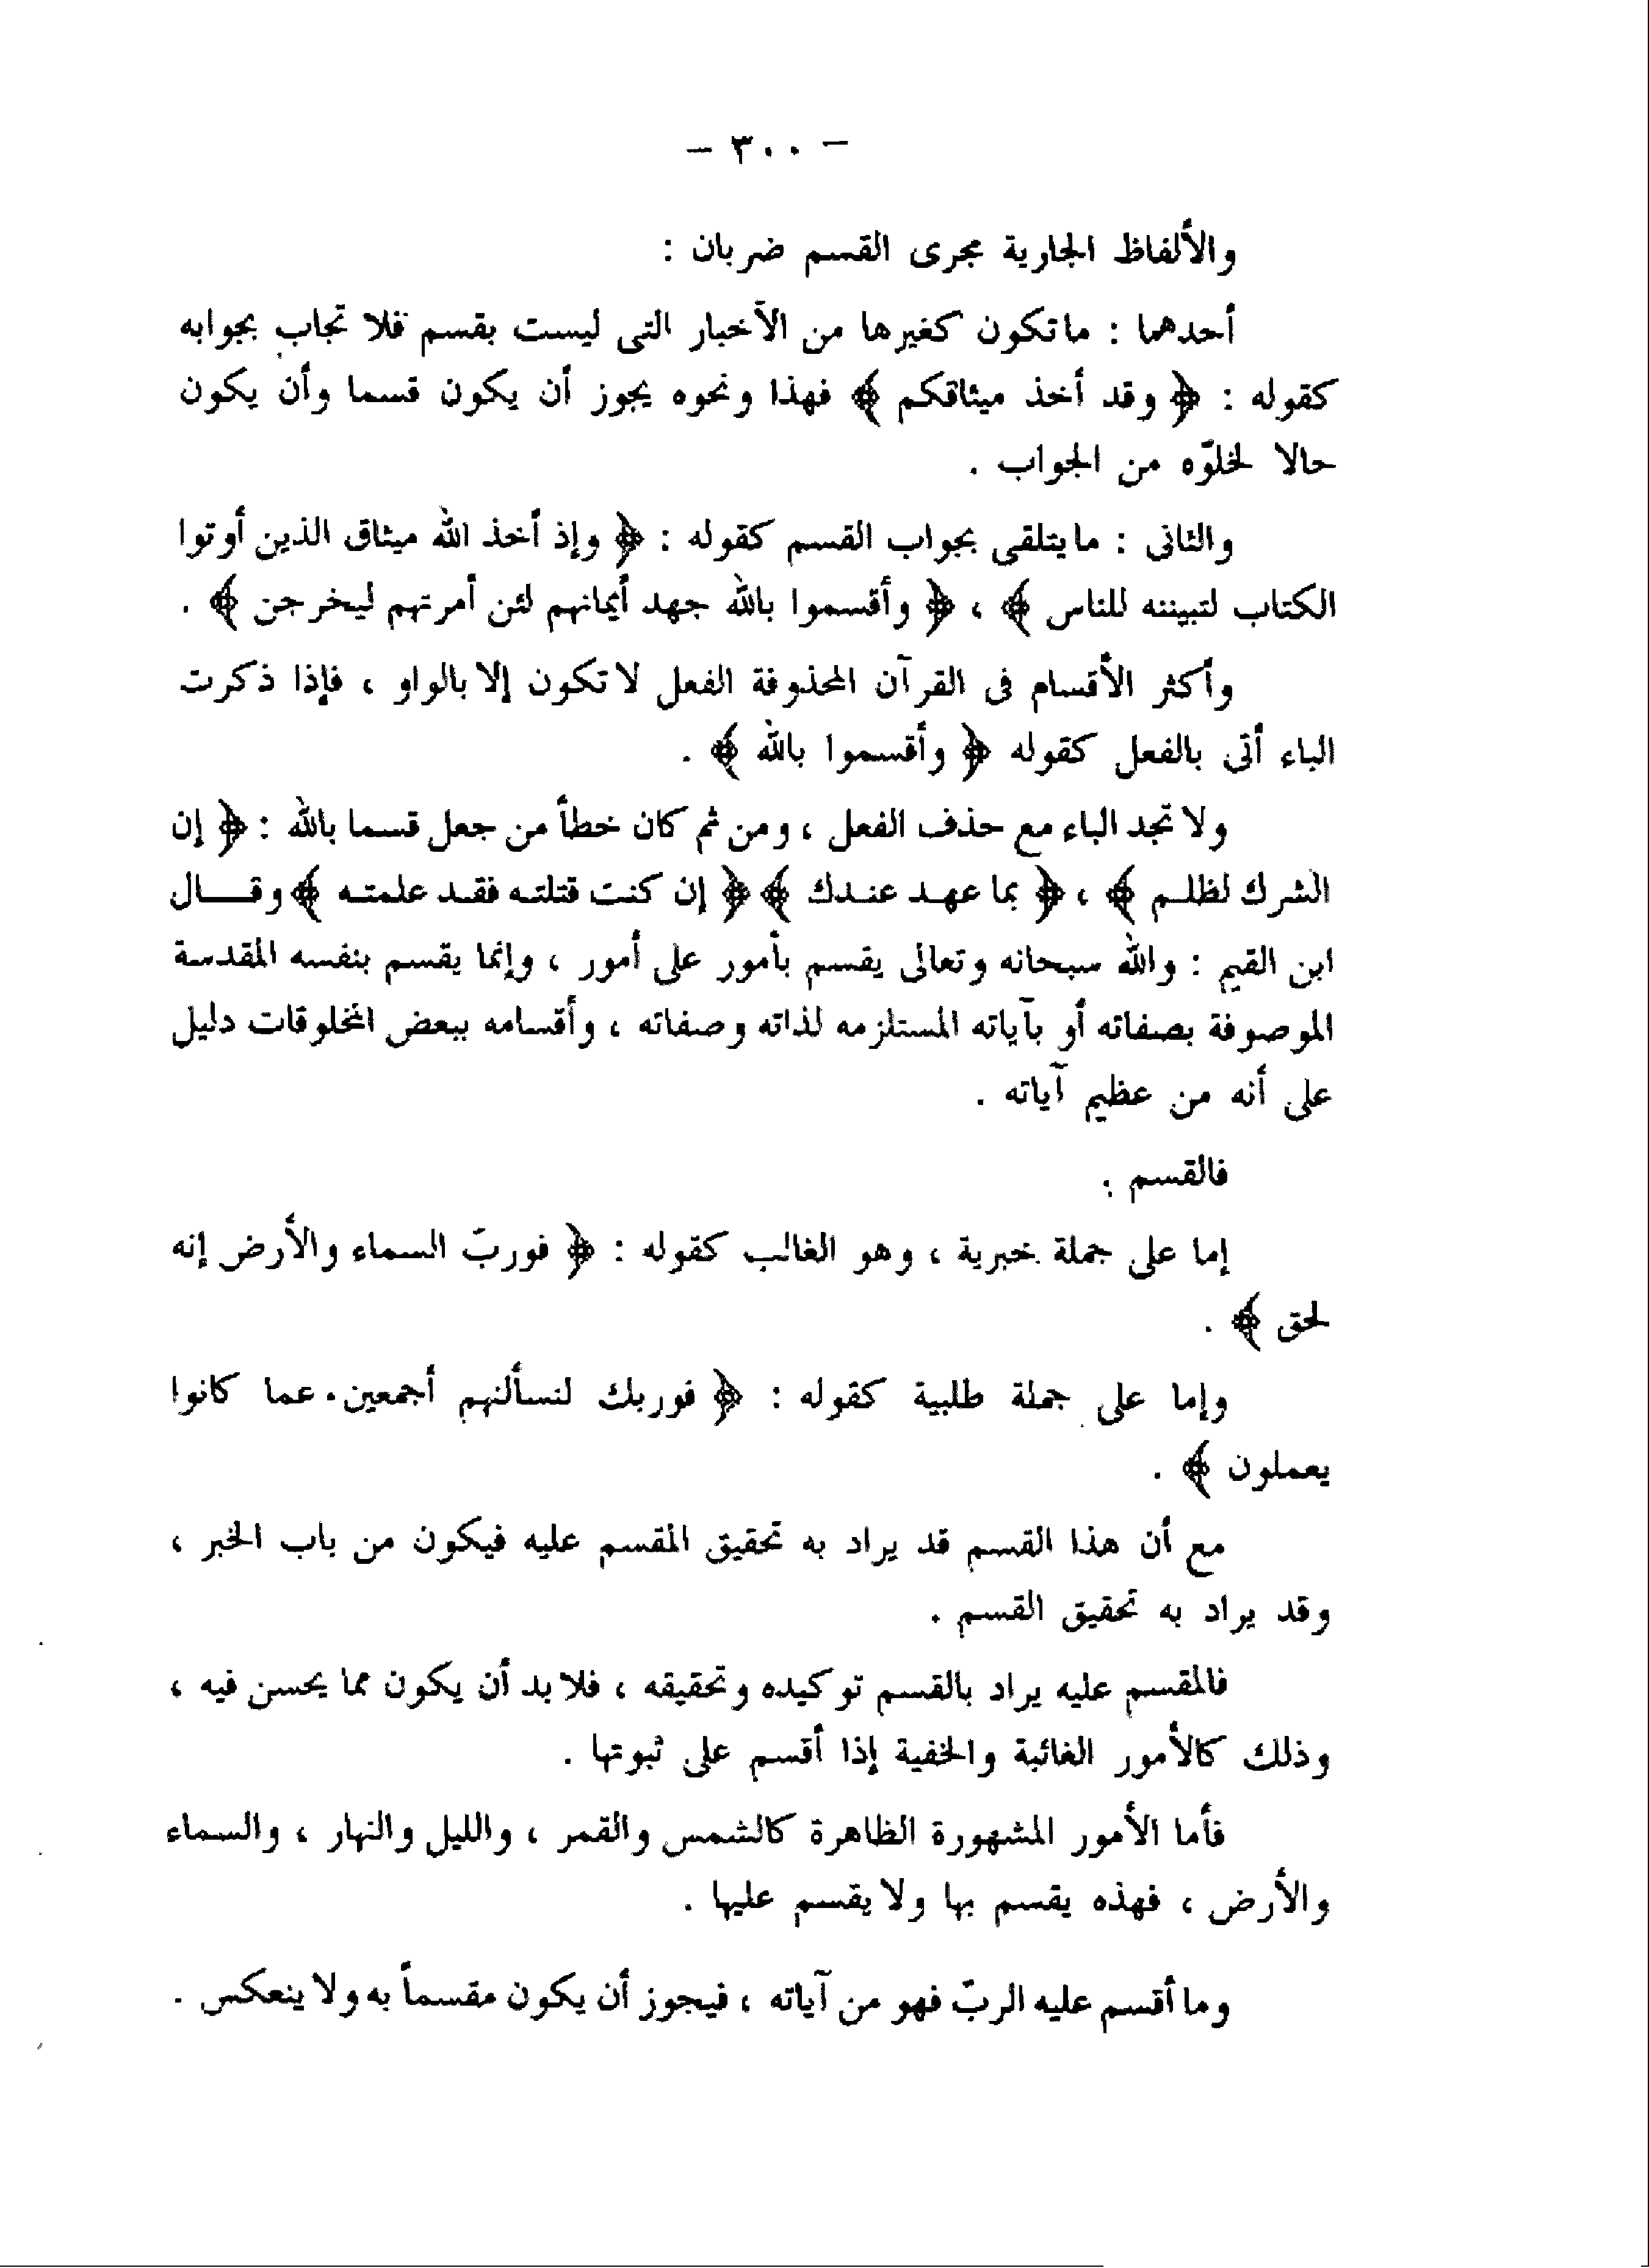 – ٣٠٠ –
والألفاظ الجارية مجرى القسم ضربان :
أحدهما : ماتكون كغيرها من الأخبار التى ليست بقسم فلا تجاب بجوابه
كقوله : ﴿ وقد أخذ ميثاقكم ﴾ فهذا ونحوه يجوز أن يكون قسما وأن يكون
حالا لخلوّه من الجواب .
والثانى : مايتلقى بجواب القسم كقوله : ﴿ وإذ أخذ الله ميثاق الذين أوتوا
الكتاب لتبيننه للناس ﴾ ، ﴿ وأقسموا بالله جهد أيمانهم لئن أمرتهم ليخرجن ﴾ .
وأكثر الأقسام فى القرآن المحذوفة الفعل لاتكون إلا بالواو ، فإذا ذكرت
الباء أتى بالفعل كقوله ﴿ وأقسموا بالله ﴾ .
ولا تجد الباء مع حذف الفعل ، ومن ثم كان خطأ من جعل قسما بالله : ﴿ إن
الشرك لظلم ﴾ ، ﴿ بما عهد عندك ﴾ ﴿ إن كنت قتلته فقد علمته ﴾ وقال
ابن القيم : والله سبحانه وتعالى يقسم بأمور على أمور ، وإنما يقسم بنفسه المقدسة
الموصوفة بصفاته أو بآياته المستلزمه لذاته وصفاته ، وأقسامه ببعض المخلوقات دليل
على أنه من عظيم آياته .
فالقسم :
إما على جملة خبرية ، وهو الغالب كقوله : ﴿ فوربّ السماء والأرض إنه
لحق ﴾ .
وإما على جملة طلبية كقوله : ﴿ فوربك لنسألنهم أجمعين . عما كانوا
يعملون ﴾ .
مع أن هذا القسم قد يراد به تحقيق المقسم عليه فيكون من باب الخبر ،
وقد يراد به تحقيق القسم .
فالمقسم عليه يراد بالقسم توكيده وتحقيقه ، فلابد أن يكون مما يحسن فيه ،
وذلك كالأمور الغائبة والخفية إذا أقسم على ثبوتها .
فأما الأمور المشهورة الظاهرة كالشمس والقمر ، والليل والنهار ، والسماء
والأرض ، فهذه يقسم بها ولايقسم عليها .
وما أقسم عليه الربّ فهو من آياته ، فيجوز أن يكون مقسماً به ولا ينعكس .